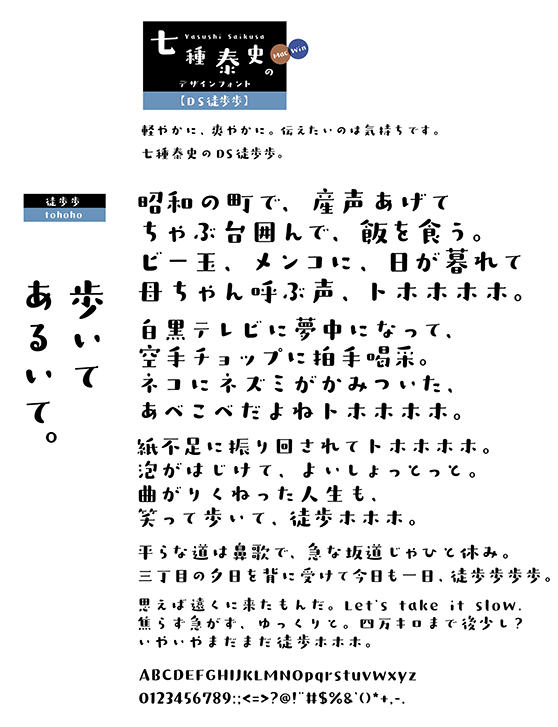 Yasushi Saikusa
七種泰史の
Mac
Win
デザインフォント
【DS徒歩歩】
軽やかに、爽やかに。伝えたいのは気持ちです。
七種泰史のDS徒歩歩。
徒歩歩
tohoho
歩いて
あるいて。
昭和の町で、産声あげて
ちゃぶ台囲んで、飯を食う。
ビー玉、メンコに、日が暮れて
母ちゃん呼ぶ声、トホホホホ。
白黒テレビに夢中になって、
空手チョップに拍手喝采。
ネコにネズミがかみついた、
あべこべだよねトホホホホ。
紙不足に振り回されてトホホホホ。
泡がはじけて、よいしょっとっと。
曲がりくねった人生も、
笑って歩いて、徒歩ホホホ。
平らな道は鼻歌で、急な坂道じゃひと休み。
三丁目の夕日を背に受けて今日も一日、徒歩歩歩歩。
思えば遠くに来たもんだ。Let's take it slow.
焦らず急がず、ゆっくりと。四万キロまで後少し?
いやいやまだまだ徒歩ホホホ。
ABCDEFGHIJKLMNOpqrstuvwxyz
0123456789:;<=>?@!"#$%&'()*+,-.